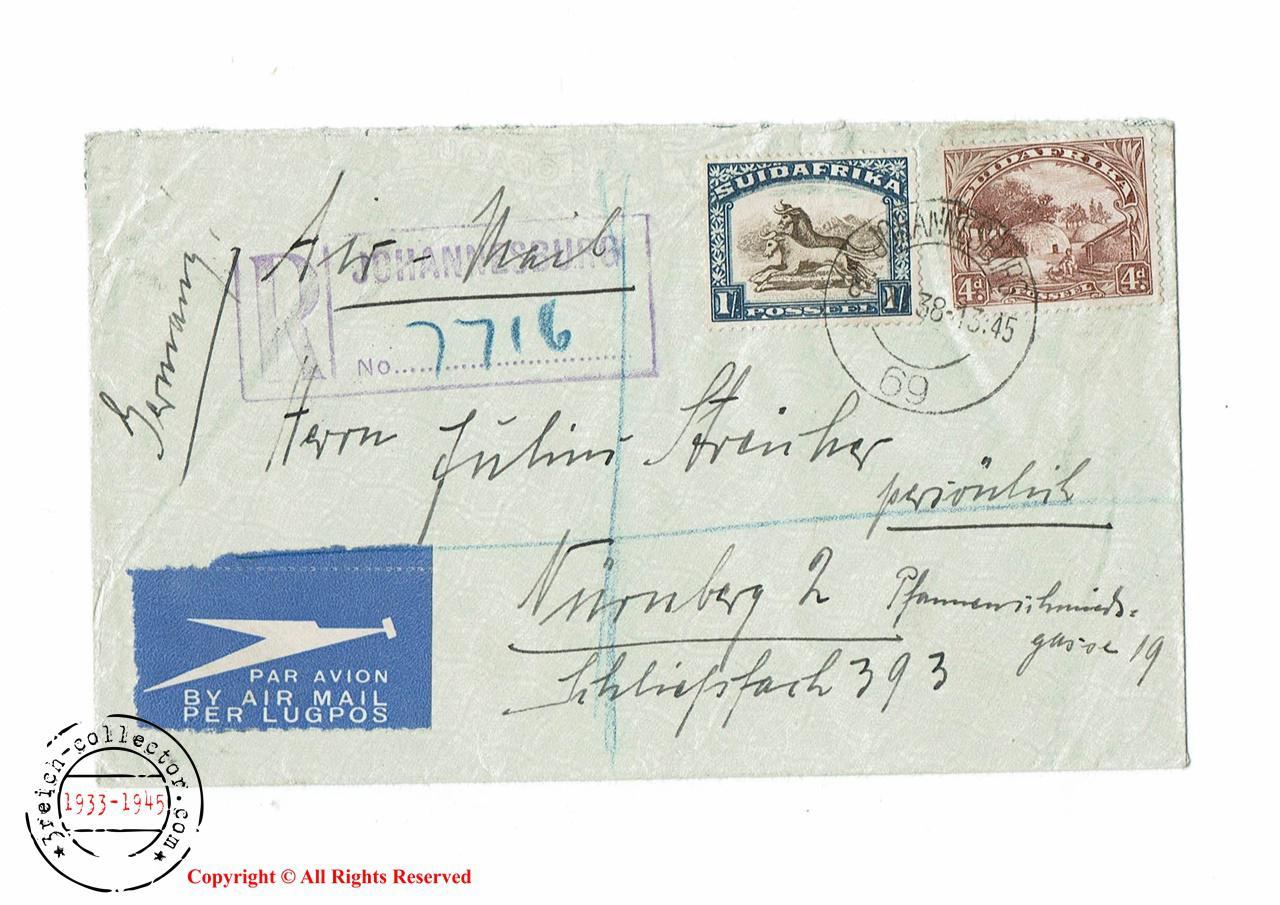 SUIDAFRIKA
1/ 1/
POSSEEL
SUIDAFRIKA
4d. 4d.
JOHANNESBURG
38-13:45
69
Air-Mail
Germany
R
JOHANNESBURG
No. 7716
Herrn Julius Streicher
persönlich
Nürnberg 2 Pfannenschmieds=
gasse 19
Schließfach 393
PAR AVION
BY AIR MAIL
PER LUGPOS
3reich-collector.com
1933-1945
Copyright © All Rights Reserved